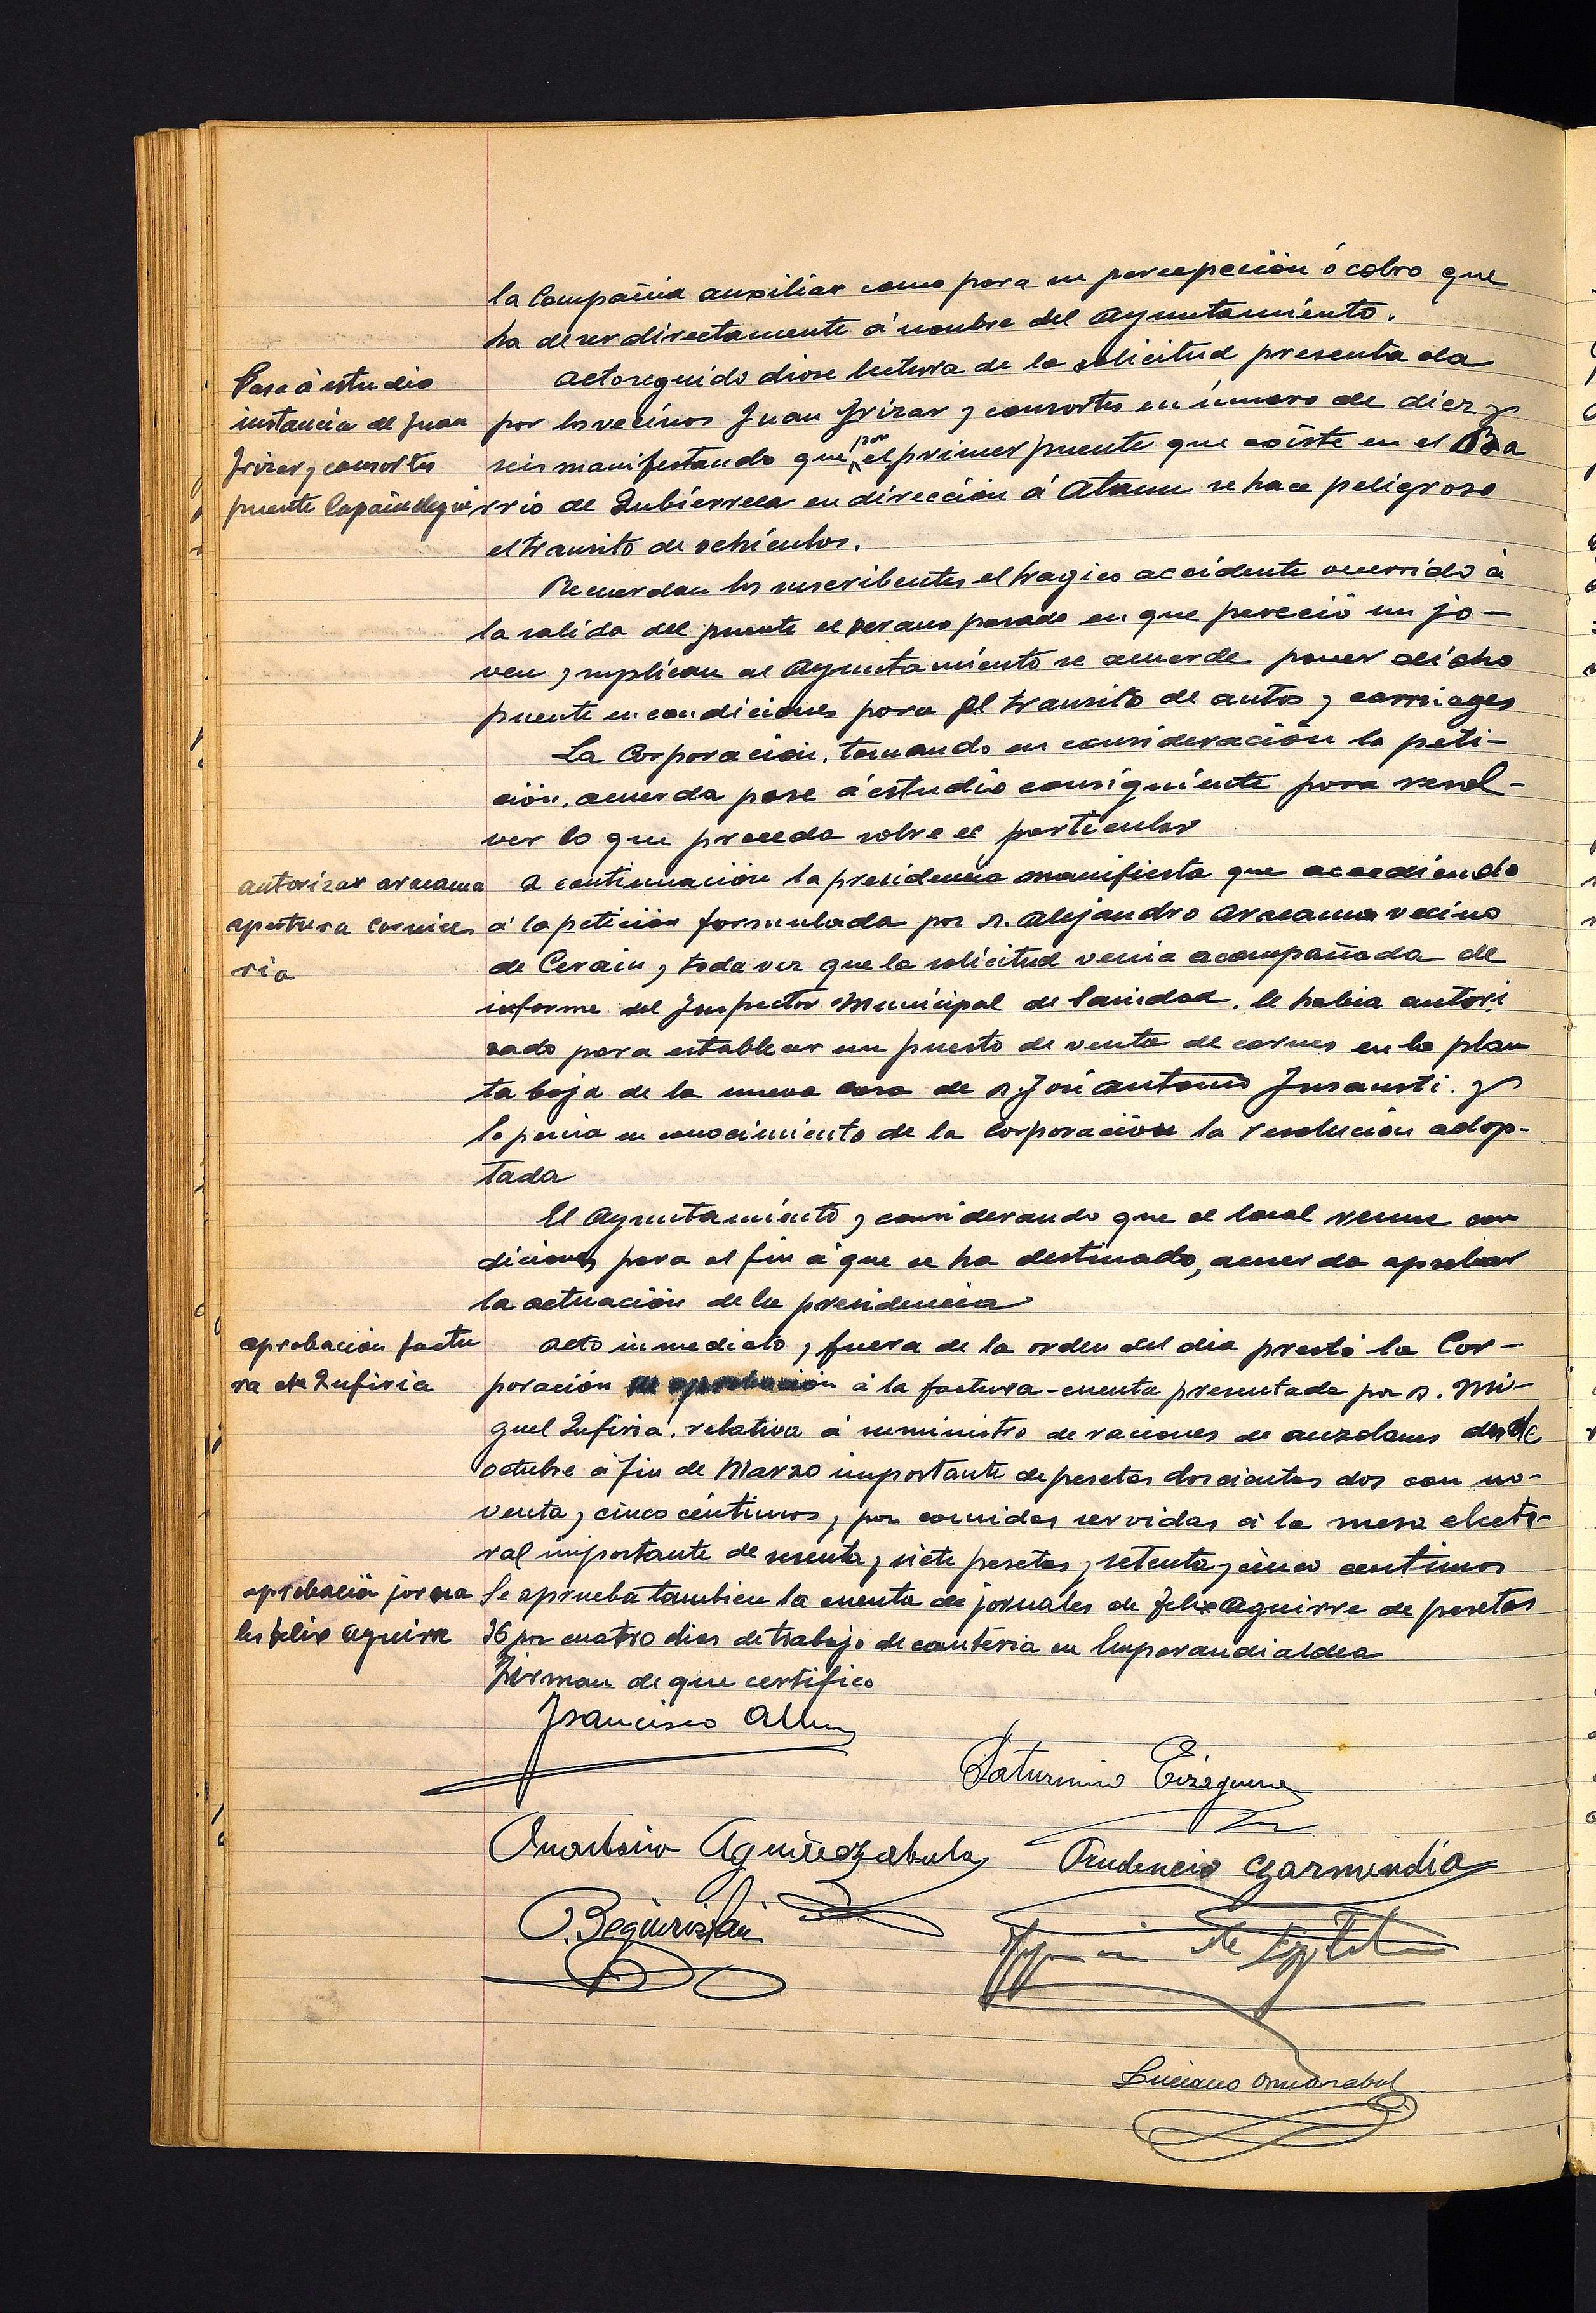 la Compañia auxiliar como para su percepción ó cobro que
ha de ser directamente á nombre del Ayuntamiento.
Pase á estudio
instancia de Juan
Irizar y consortes
puente Capaindegui
Acto seguido diose lectura de la solicitud presentada
por los vecinos Juan Irizar y consortes en número de diez y
seis manifestando que por el primer puente que existe en el Ba
rrio de Zubierreca en dirección á Ataun se hace peligroso
el transito de vehículos.
Recuerdan los suscribentes el tragico accidente ocurrido á
la salida del puente el verano pasado en que pereció un jo-
ven y suplican al Ayuntamiento se acuerde poner dicho
puente en condiciones para el transito de autos y carruages
La Corporación, tomando en consideración la peti-
ción, acuerda pase á estudio consiguiente para resol-
ver lo que proceda sobre el particular
autorizar aracama
apertura carnice
ria
A continuación la presidencia manifiesta que accediendo
á la petición formulada por D. Alejandro Aracama vecino
de Cerain y toda vez que la solicitud venia acompañada de
informe del Inspector Municipal de Sanidad, le habia autori
zado para establecer un puesto de venta de carnes en la plan
ta baja de la nueva casa de D. José Antonio Insausti. y
lo ponia en conocimiento de la Corporación la resolución adop-
tada
El Ayuntamiento y considerando que el local reune con
diciones para el fin á que se ha destinado, acuerda aprobar
la actuación de la presidencia
aprobación factu
ra de Zufiria
Acto inmediato y fuera de la orden del dia prestó la Cor-
poración su aprobación á la factura-cuenta presentada por D. Mi-
guel Zufiria, relativa á suministro de raciones de auzolanes desde
Octubre á fin de Marzo importante de pesetas doscientas dos con no-
venta y cinco céntimos y por comidas servidas á la mesa electo-
ral importante de sesenta y siete pesetas y setenta y cinco centimos
aprobación jorna
les felix aguirre
Se aprueba tambien la cuenta de jornales de Felix Aguirre de pesetas
36 por cuatro dias de trabajo de cantéria en Emparandialdea
Firman de que certifico
Francisco
Saturnino Eizaguirre
Anastasio Aguirrezabala
Prudencio Garmendia
Beguiristain
Luciano